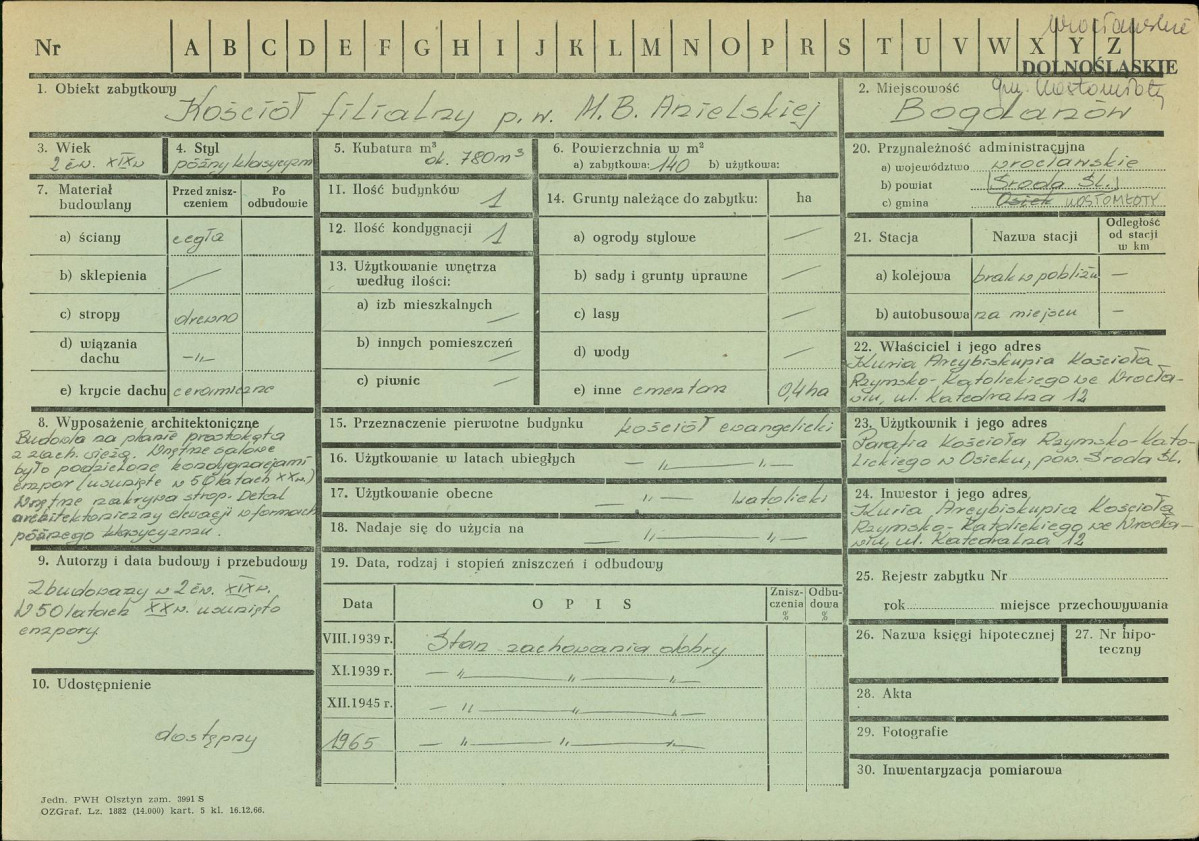 wrocławskie
Nr A B C D E F G H I J K L M N O P R S T U V W X Y Z
DOLNOŚLĄSKIE
1. Obiekt zabytkowy
Kościół filialny p.w. M.B. Anielskiej
2. Miejscowość gm. Kostomłoty
Bogdanów
3. Wiek
2 ćw. XIXw
4. Styl
późny klasycyzm
5. Kubatura m³
ok. 780m³
6. Powierzchnia w m²
a) zabytkowa: 140 b) użytkowa:
7. Materiał budowlany
Przed zniszczeniem
Po odbudowie
a) ściany cegła
b) sklepienia —
c) stropy drewno
d) wiązania dachu -„-
e) krycie dachu ceramiczne
8. Wyposażenie architektoniczne
Budowla na planie prostokąta
z zach. wieżą. Wnętrze salowe
było podzielone kondygnacjami
empor (usunięte w 50 latach XXw.)
Wnętrze zakrywa strop. Detal
architektoniczny elewacji w formach
późnego klasycyzmu.
9. Autorzy i data budowy i przebudowy
Zbudowany w 2 ćw. XIXw.
W 50 latach XXw. usunięto
empory.
10. Udostępnienie
dostępny
11. Ilość budynków 1
12. Ilość kondygnacji 1
13. Użytkowanie wnętrza
według ilości:
a) izb mieszkalnych —
b) innych pomieszczeń —
c) piwnic —
14. Grunty należące do zabytku: ha
a) ogrody stylowe —
b) sady i grunty uprawne —
c) lasy —
d) wody —
e) inne cmentarz 0,4ha
15. Przeznaczenie pierwotne budynku kościół ewangelicki
16. Użytkowanie w latach ubiegłych — „ —
17. Użytkowanie obecne „ — katolicki
18. Nadaje się do użycia na — „ — „ —
19. Data, rodzaj i stopień zniszczeń i odbudowy
Data
O P I S
Zniszczenia %
Odbudowa %
VIII.1939 r. Stan zachowania dobry
XI.1939 r. — „ — „ — „ —
XII.1945 r. — „ — „ — „ —
1965 — „ — „ — „ —
20. Przynależność administracyjna
a) województwo wrocławskie
b) powiat (Środa Śl.)
c) gmina Osiek KOSTOMŁOTY
21. Stacja
Nazwa stacji
Odległość od stacji w km
a) kolejowa brak w pobliżu —
b) autobusowa na miejscu —
22. Właściciel i jego adres
Kuria Arcybiskupia Kościoła
Rzymsko-Katolickiego we Wrocła-
wiu, ul. Katedralna 12
23. Użytkownik i jego adres
Parafia Kościoła Rzymsko-Kato-
lickiego w Osieku, pow. Środa Śl.
24. Inwestor i jego adres
Kuria Arcybiskupia Kościoła
Rzymsko-Katolickiego we Wrocła-
wiu, ul. Katedralna 12
25. Rejestr zabytku Nr
rok miejsce przechowywania
26. Nazwa księgi hipotecznej
27. Nr hipoteczny
28. Akta
29. Fotografie
30. Inwentaryzacja pomiarowa
Jedn. PWH Olsztyn zam. 3991 S
OZGraf. Lz. 1882 (14.000) kart. 5 kl. 16.12.66.